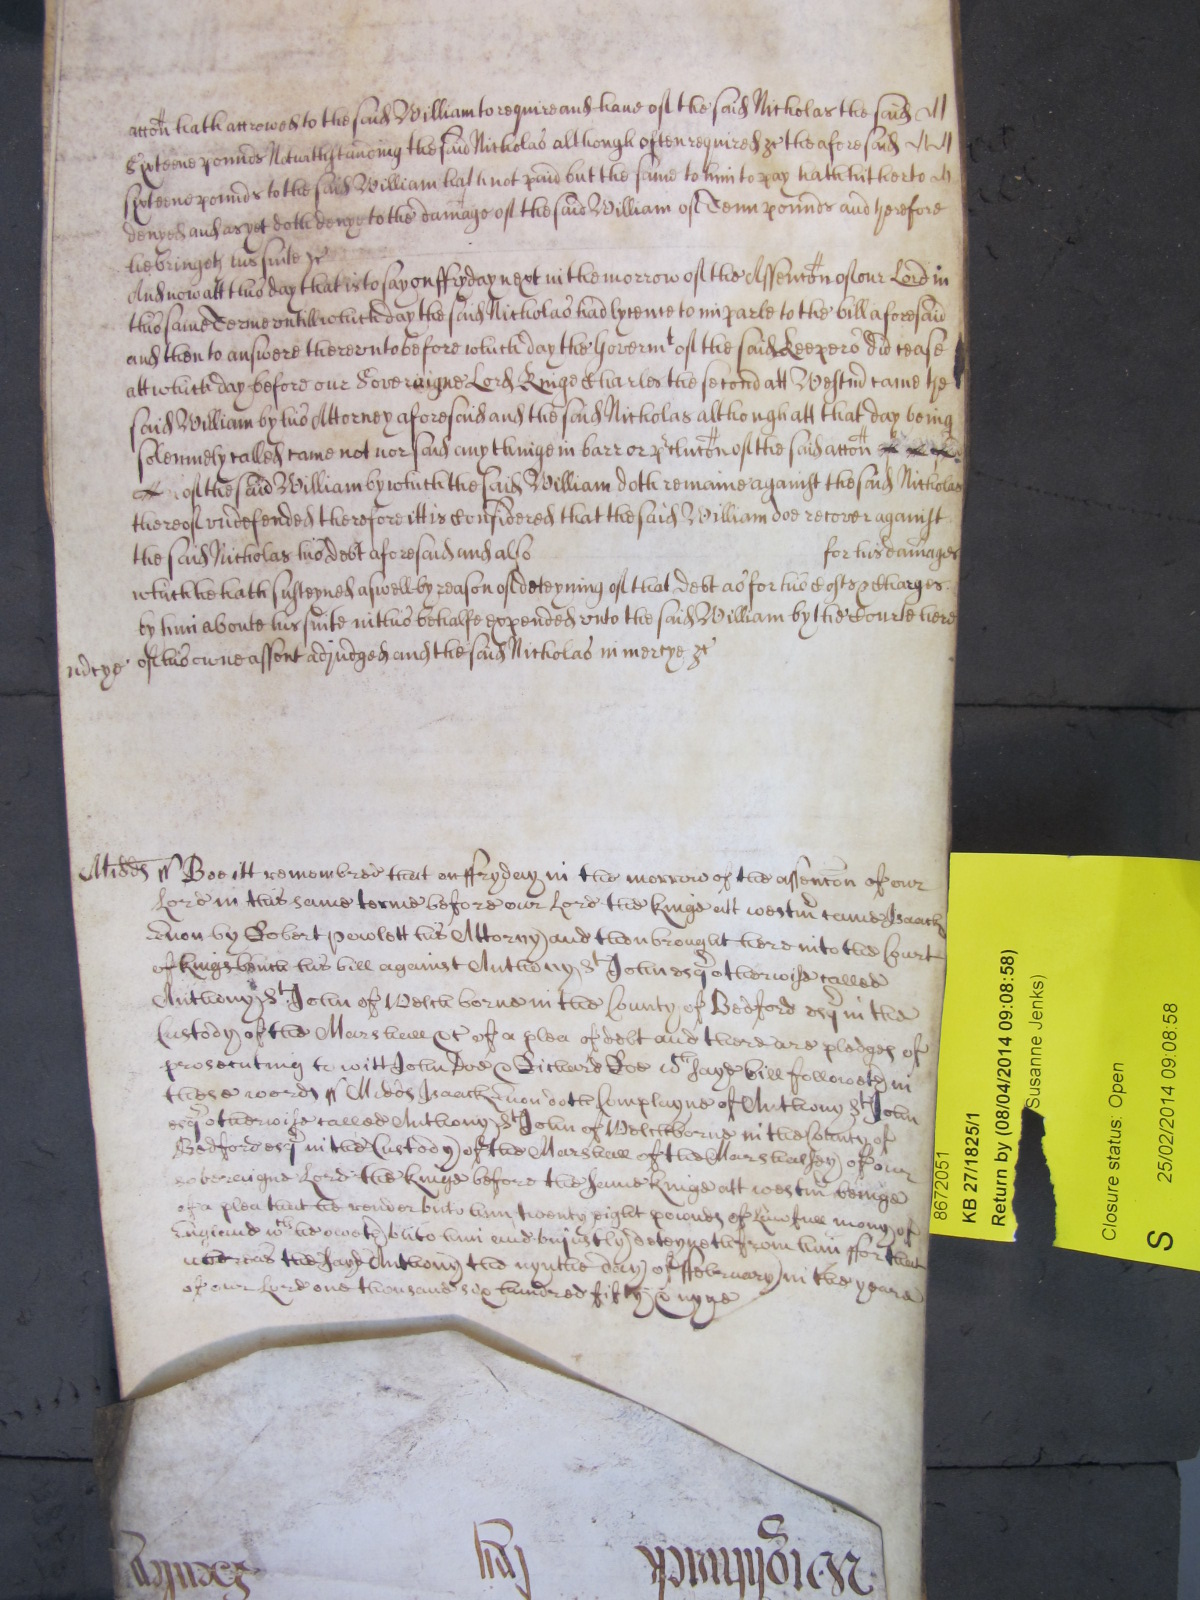 accōn hath accrewed to the said William to require and have of the said Nicholas the said
Sixteene pounds Notwithstanding the said Nicholas although often required &c the aforesaid
sixteene pounds to the said William hath not paid but the same to him to pay hath hitherto
denyed and as yet doth denye to the damage of the said William of Tenn pounds and therefore
he bringeth his suite &c
And now att this day that is to say on ffryday next in the morrow of the Assencōn of our Lord in
this same Terme untill which day the said Nicholas had lycence to imparle to the bill aforesaid
and then to answere thereunto before which day the Governmt of the said Keepers did cease
att which day before our Soveraigne Lord Kinge Charles the second att Westm̄ came the
said William by his Attorney aforesaid and the said Nicholas although att that day being
solemnely called came not nor said any thinge in barr or p̄clucōn of the said accōn
of the said William by which the said William doth remaine against the said Nicholas
thereof undefended therefore itt is Considered that the said William doe recover against
the said Nicholas his debt aforesaid and also for his damages
which he hath susteyned aswell by reason of deteyning of that debt as for his Costs & Charges
by him aboute his suite in this behalfe expended unto the said William by the Courte here
of his owne assent adjudged and the said Nicholas in mercye &c
mercye
Midds ss Bee itt remembred that on ffryday in the morrow of the assencōn of our
Lord in this same terme before our Lord the Kinge att westm̄ came Isaack
by Robert Powlett his Attorny and then brought here into the Court
of Kings bench his bill against Anthony St John esqr otherwise called
Anthony St John of Melchborne in the County of Bedford esqr in the
Custody of the Marshall &c of a plea of debt and there are pledges of
prosecuting to witt John Doe & Richard Roe wch sayd bill followeth in
these words ss Midds Isaack doth Complayne of Anthony St John
esqr otherwise called Anthony St John of Melchborne in the County of
Bedford esqr in the Custody of the Marshall of the Marshalsey of our
sovereigne Lord the Kinge before the same Kinge att westm̄ beinge
of a plea that he render unto him twenty eight pounds of Lawfull mony of
England wch he oweth unto him and unjustly deteyneth from him ffor that
whereas the sayd Anthony the nynthe day of ffebruary in the yeare
of our Lord one thousand six hundred fifty & nyne
8672051
KB 27/1825/1
Return by (08/04/2014 09:08:58)
Susanne Jenks)
Closure status: Open
S
25/02/2014 09:08:58